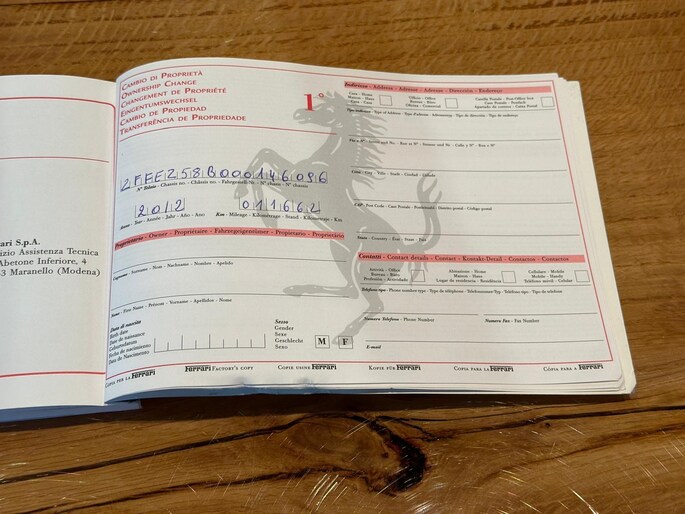 ari S.p.A.
izio Assistenza Tecnica
Abetone Inferiore, 4
53 Maranello (Modena)
CAMBIO DI PROPRIETÀ
OWNERSHIP CHANGE
CHANGEMENT DE PROPRIÉTÉ
EIGENTUMSWECHSEL
CAMBIO DE PROPIEDAD
TRANSFERÊNCIA DE PROPRIEDADE
1°
N° Telaio - Chassis no. - Châssis no. - Fahrgestell-Nr. - N° chasis - N° chassis
2012
011662
Anno - Year - Année - Jahr - Año - Ano
Km - Mileage - Kilométrage - Stand - Kilometraje - Km
Proprietario - Owner - Propriétaire - Fahrzeugeigentümer - Propietario - Proprietário
Cognome - Surname - Nom - Nachname - Nombre - Apelido
Nome - First Name - Prénom - Vorname - Apellidos - Nome
Data di nascita
Birth date
Date de naissance
Geburtsdatum
Fecha de nacimiento
Data de Nascimento
Sesso
Gender
Sexe
Geschlecht
Sexo
M F
Indirizzo - Address - Adresse - Adresse - Dirección - Endereço
Casa - Home
Maison - Haus
Casa - Casa
Office - Office
Bureau - Büro
Oficina - Comercial
Casella Postale - Post-Office box
Case Postale - Postfach
Apartado de correos - Caixa Postal
Tipo indirizzo - Type of address - Type d'adresse - Adressentyp - Tipo de dirección - Tipo de endereço
Città - City - Ville - Stadt - Ciudad - Cidade
CAP - Post Code - Case Postale - Postleitzahl - Distrito postal - Código postal
Stato - Country - Etat - Staat - País
Contatti - Contact details - Contact - Kontakt-Detail - Contactos - Contactos
Attività - Office
Bureau - Büro
Profesión - Actividade
Abitazione - Home
Maison - Haus
Lugar de residencia - Residência
Cellulare - Mobile
Mobile - Handy
Teléfono móvil - Celular
Telefono tipo - Phone number type - Type de téléphone - Telefonnummer-Typ - Teléfono tipo - Tipo de telefone
Numero Telefono - Phone Number
Numero Fax - Fax Number
E-mail
COPIA PER LA Ferrari
Ferrari FACTORY'S COPY
COPIE USINE Ferrari
KOPIE FÜR Ferrari
COPIA PARA LA Ferrari
CÓPIA PARA A Ferrari